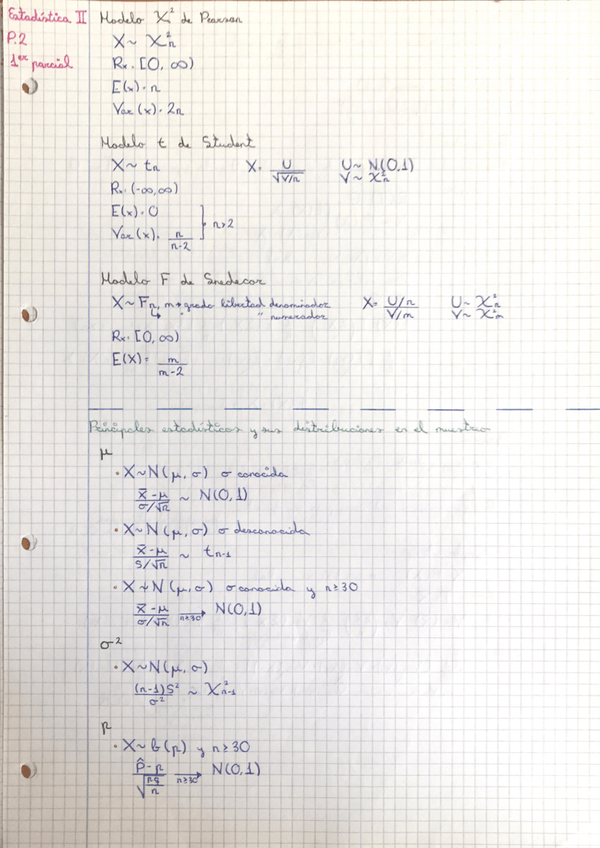 Estadística II
P.2
1er parcial
Modelo χ² de Pearson
X ~ χ²n
Rx: [0, ∞)
E(x) = n
Var(x) = 2n
Modelo t de Student
X ~ tn X = U / √V/n U ~ N(0,1)
V ~ χ²n
Rx: (-∞, ∞)
E(x) = 0
Var(x) = n / n-2 } n>2
Modelo F de Snedecor
X ~ Fn, m → grado libertad denominador X = U/n / V/m U ~ χ²n
↳ " " numerador V ~ χ²m
Rx: [0, ∞)
E(X) = m / m-2
Principales estadísticos y sus distribuciones en el muestreo
μ
· X ~ N(μ, σ) σ conocida
x̄ - μ / σ/√n ~ N(0,1)
· X ~ N(μ, σ) σ desconocida
x̄ - μ / S/√n ~ tn-1
· X ≁ N(μ, σ) σ conocida y n≥30
x̄ - μ / σ/√n →n≥30 N(0,1)
σ²
· X ~ N(μ, σ)
(n-1)S² / σ² ~ χ²n-1
p
· X ~ b(p) y n≥30
P̂ - p / √pq/n →n≥30 N(0,1)